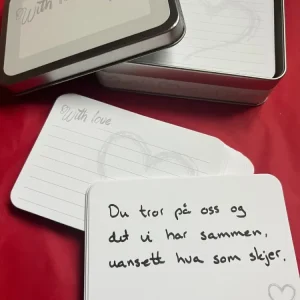 With l
With love
Du tror på oss og
det vi har sammen,
uansett hva som skjer.